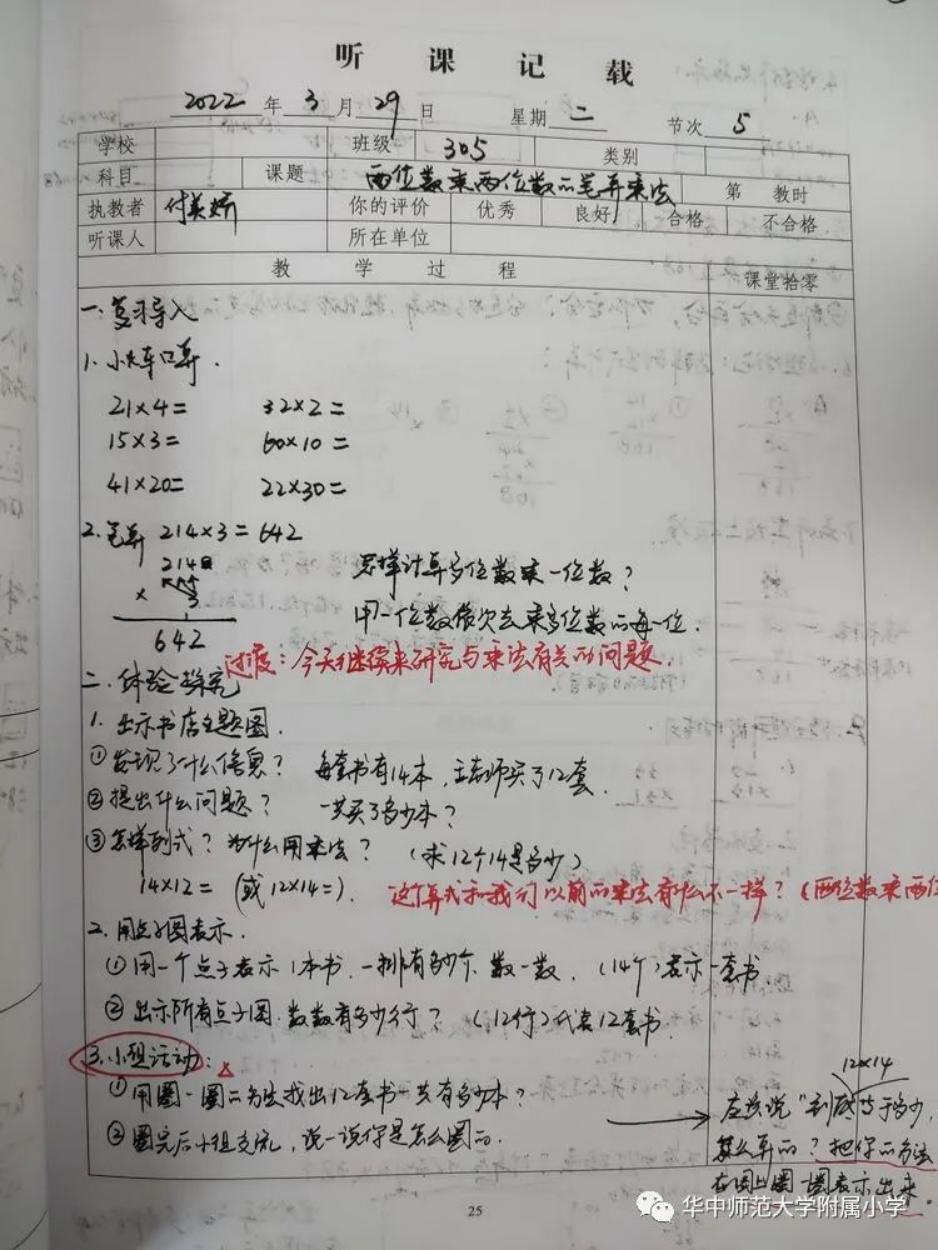 听 课 记 载
2022 年 3 月 29 日 星期 二 节次 5
学校 班级 305 类别
科目 课题 两位数乘两位数的笔算乘法 第 教时
执教者 付美娇 你的评价 优秀 良好 合格 不合格
听课人 所在单位
教 学 过 程 课堂拾零
一.复习导入
1.小火车口算.
21×4= 32×2=
15×3= 60×10=
41×20= 22×30=
2.笔算 214×3=642
214
× 3
642
怎样计算多位数乘一位数?
用一位数依次去乘多位数的每一位.
过渡:今天继续来研究与乘法有关的问题.
二.体验探究
1.出示书店主题图.
①发现了什么信息? 每套书有14本,王老师买了12套.
②提出什么问题? 一共买了多少本?
③怎样列式?为什么用乘法? (求12个14是多少)
14×12= (或12×14=).
这算式和我们以前的乘法有什么不一样?(两位数乘两位
2.用点子图表示.
①用一个点子表示1本书.一排有多少个.数一数.(14个)表示一套书.
②出示所有点子图.数数有多少行?(12行)代表12套书.
3.小组活动:
①用圈一圈的方法找出12套书一共有多少本?
②圈完后小组交流,说一说你是怎么圈的.
12×14
应该说"到底等于多少,
怎么算的?把你的方法
在图上圈一圈表示出来.
25
华中师范大学附属小学